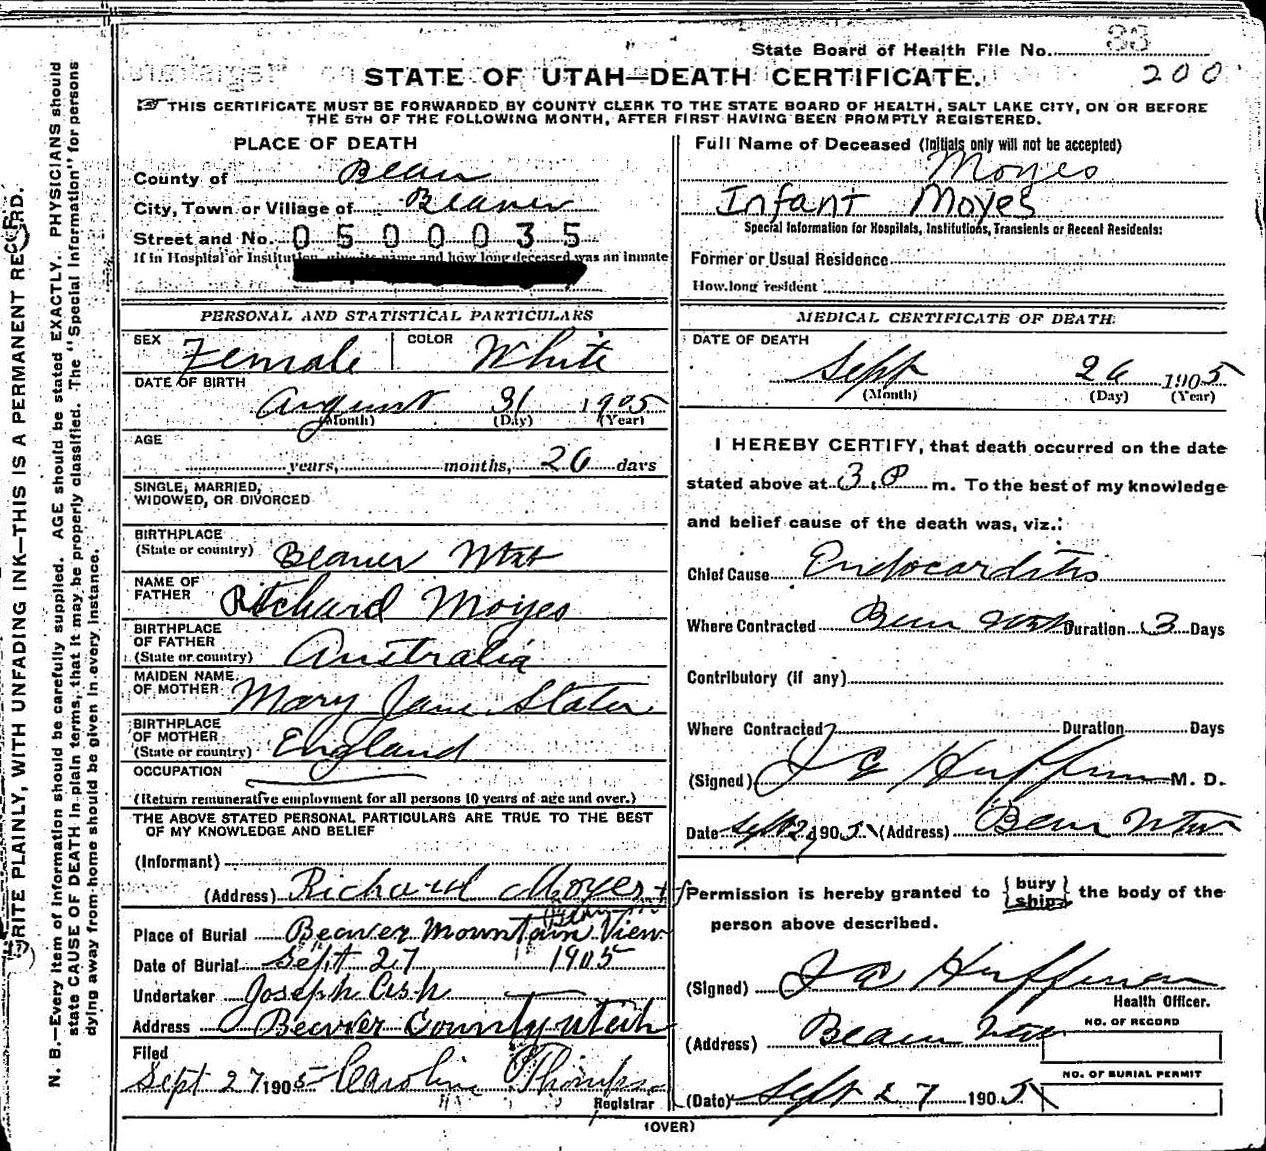 State Board of Health File No. 33
200
STATE OF UTAH—DEATH CERTIFICATE.
THIS CERTIFICATE MUST BE FORWARDED BY COUNTY CLERK TO THE STATE BOARD OF HEALTH, SALT LAKE CITY, ON OR BEFORE
THE 5TH OF THE FOLLOWING MONTH, AFTER FIRST HAVING BEEN PROMPTLY REGISTERED.
PLACE OF DEATH
County of Beaver
City, Town or Village of Beaver
Street and No. 0500035
If in Hospital or Institution, give name and how long deceased was an inmate
PERSONAL AND STATISTICAL PARTICULARS
SEX Female COLOR White
DATE OF BIRTH
August 31 1905
(Month) (Day) (Year)
AGE
years, months, 26 days
SINGLE, MARRIED,
WIDOWED, OR DIVORCED
BIRTHPLACE
(State or country) Beaver Utah
NAME OF
FATHER Richard Moyes
BIRTHPLACE
OF FATHER
(State or country) Australia
MAIDEN NAME
OF MOTHER Mary Jane Slater
BIRTHPLACE
OF MOTHER
(State or country) England
OCCUPATION
(Return remunerative employment for all persons 10 years of age and over.)
THE ABOVE STATED PERSONAL PARTICULARS ARE TRUE TO THE BEST
OF MY KNOWLEDGE AND BELIEF
(Informant)
(Address) Richard Moyes
Place of Burial Beaver Mountain View
Date of Burial Sept 27 1905
Undertaker Joseph Cish
Address Beaver County Utah
Filed
Sept 27 1905 Caroline Thompson
Registrar
Full Name of Deceased (Initials only will not be accepted)
Moyes
Infant Moyes
Special Information for Hospitals, Institutions, Transients or Recent Residents:
Former or Usual Residence
How long resident
MEDICAL CERTIFICATE OF DEATH
DATE OF DEATH
Sept 26 1905
(Month) (Day) (Year)
I HEREBY CERTIFY, that death occurred on the date
stated above at 3.P m. To the best of my knowledge
and belief cause of the death was, viz.:
Chief Cause Endocarditis
Where Contracted Beaver Utah Duration 3 Days
Contributory (if any)
Where Contracted Duration Days
(Signed) J C Huffman M. D.
Date Sept 1905 (Address) Beaver Utah
Permission is hereby granted to {bury ship} the body of the
person above described.
(Signed) J C Huffman
Health Officer.
(Address) Beaver Utah
NO. OF RECORD
NO. OF BURIAL PERMIT
(Date) Sept 27 1905
(OVER)
WRITE PLAINLY, WITH UNFADING INK—THIS IS A PERMANENT RECORD.
N. B.—Every item of information should be carefully supplied. AGE should be stated EXACTLY. PHYSICIANS should
state CAUSE OF DEATH in plain terms, that it may be properly classified. The "Special Information" for persons
dying away from home should be given in every instance.